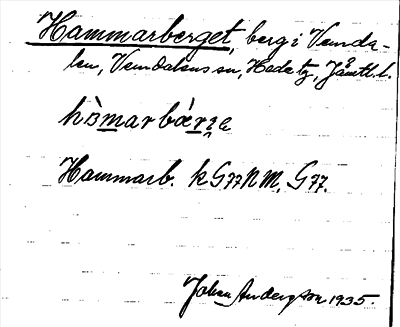 Hammarberget, berg i Vemda-
len, Vemdalens sn, Hede tg, Jämtl. l.
hòmarbáʀ̥ɡe
Hammarb. k G77 N M, G77.
Johan Andersson 1935.